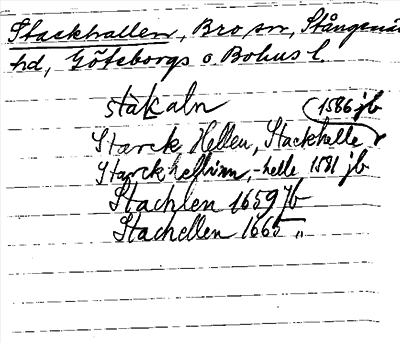 Stackhallen, Bro sn, Stångenäs
hd, Göteborgs o Bohus l.
stakaln 1586 jb
Starck Hellen, Stackhelle
Starckhellinn, -helle 1581 jb
Stachlen 1659 Jb
Stachellen 1665 "